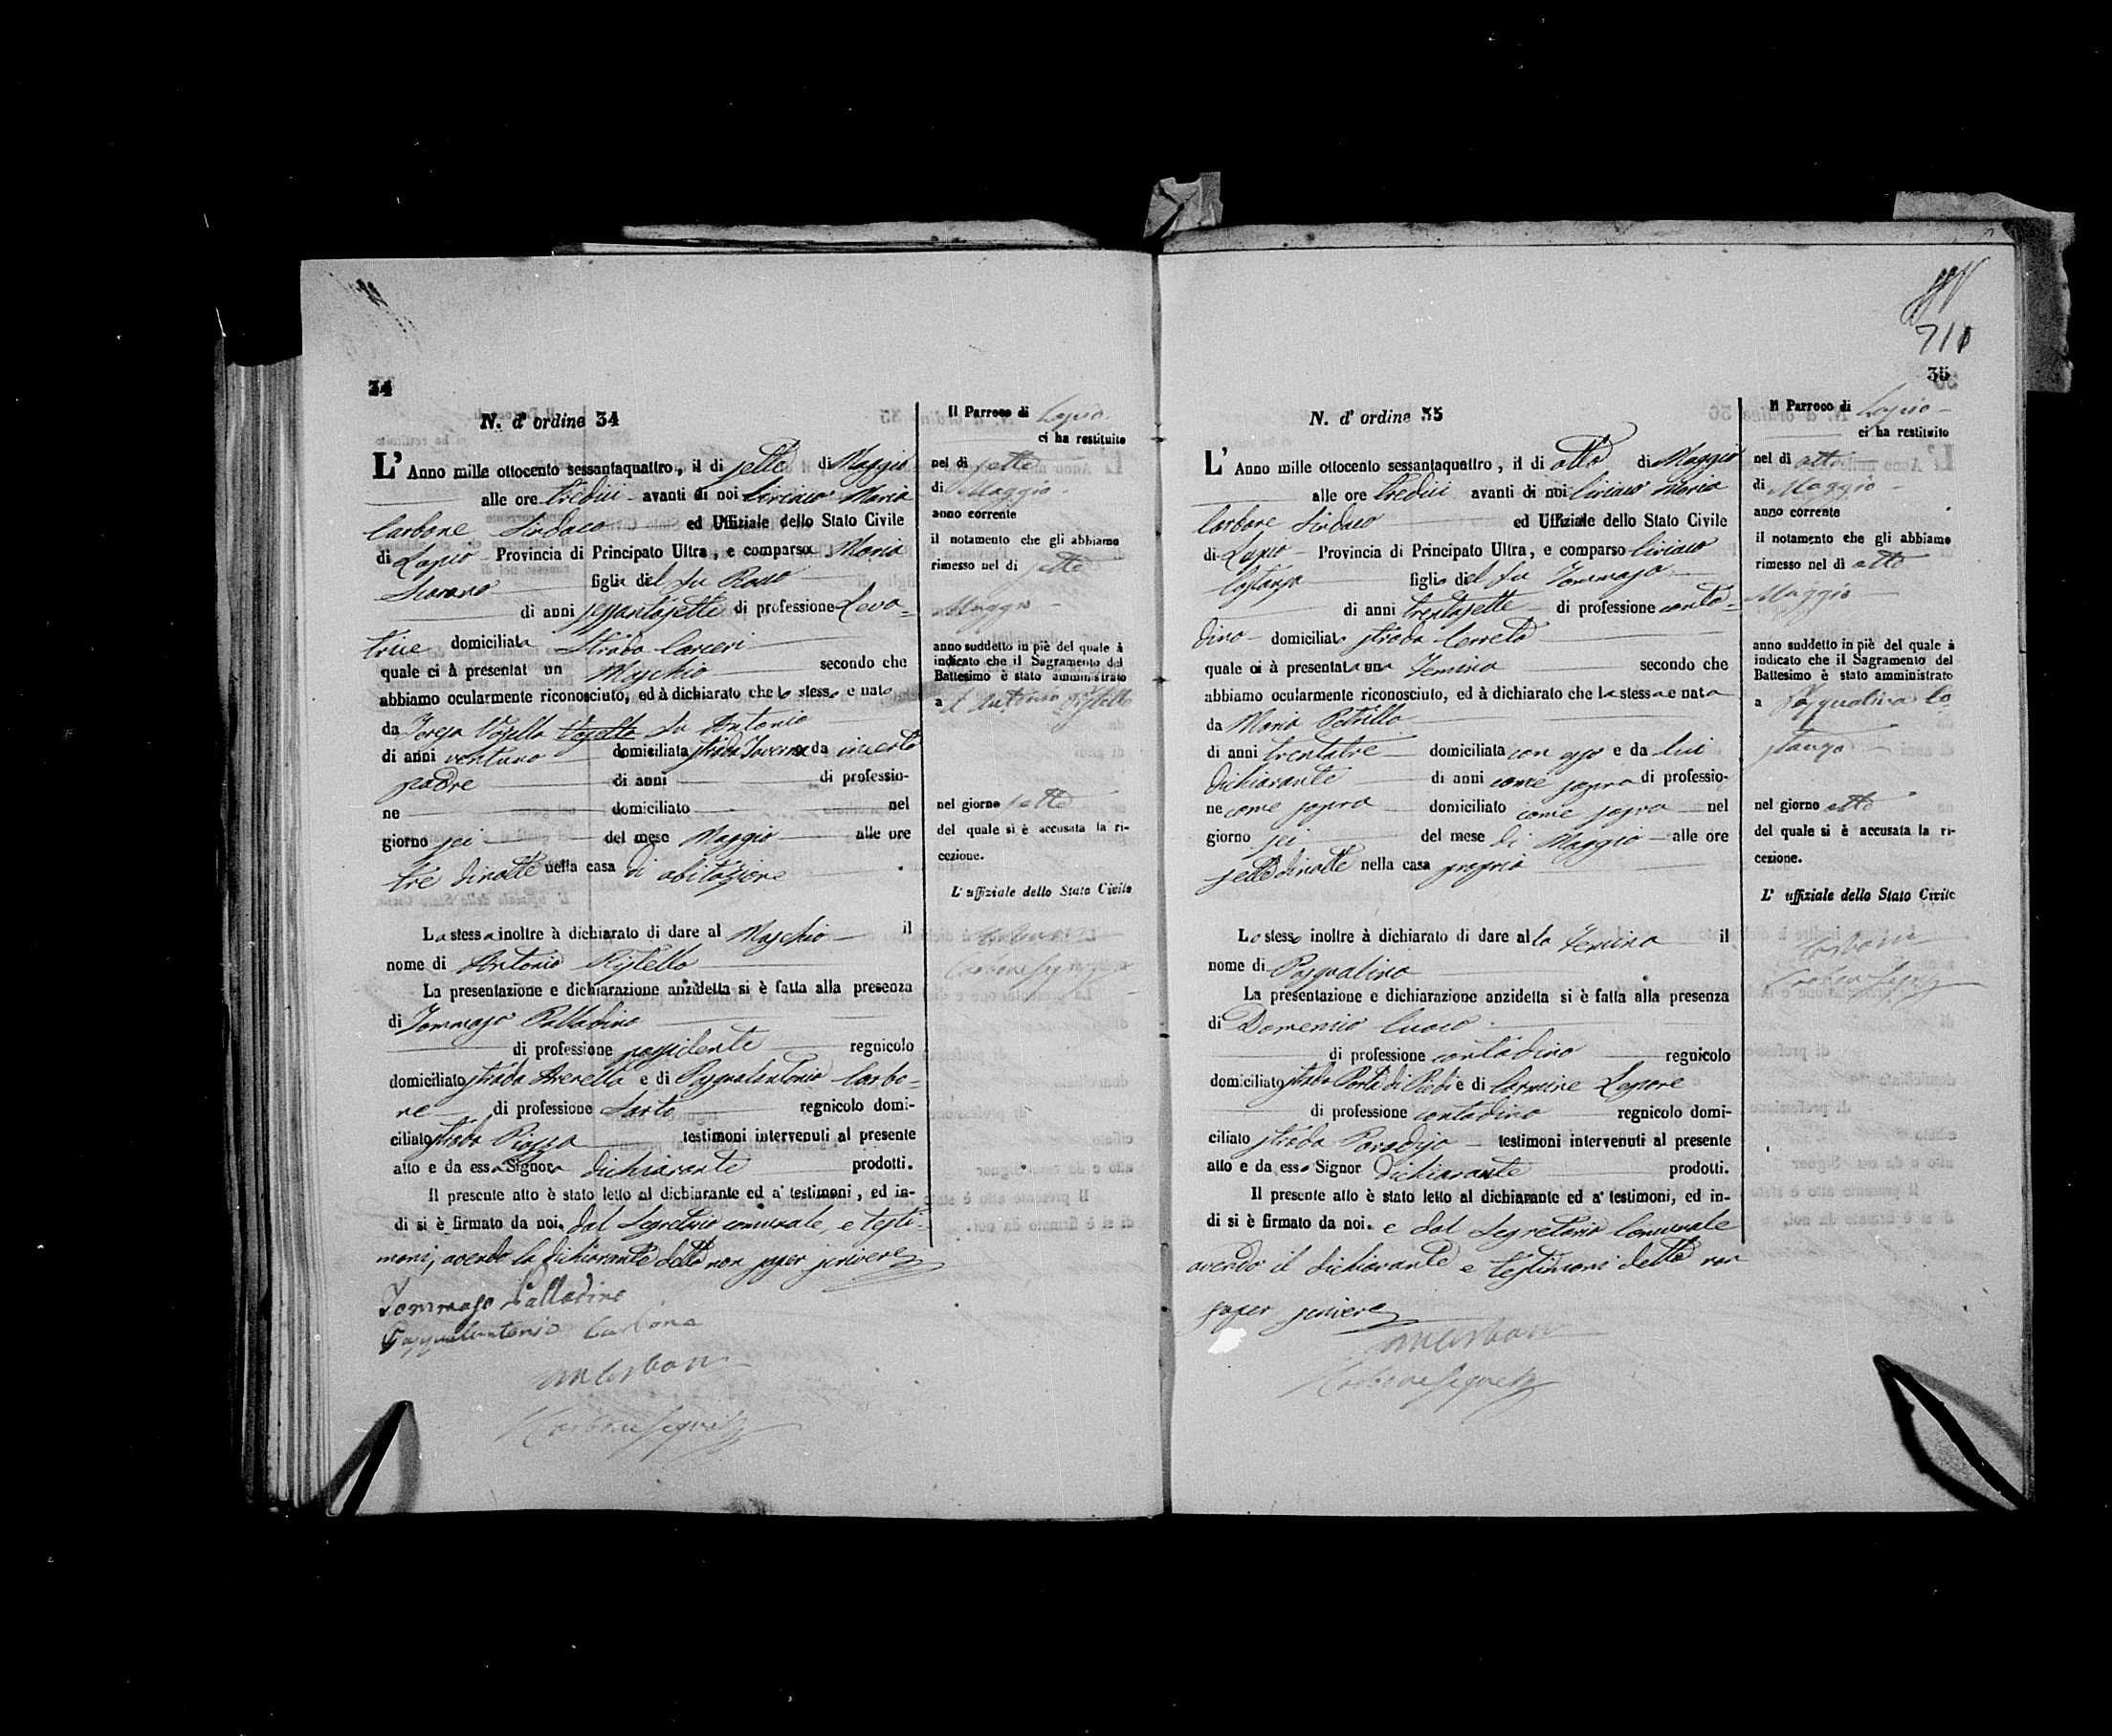 34
N. d' ordine 34
L' Anno mille ottocento sessantaquattro, il di sette di Maggio
alle ore tredici avanti di noi Ciriaco Maria
Carbone Sindaco ed Uffiziale dello Stato Civile
di Lapio Provincia di Principato Ultra, e comparsa Maria
figlia del fu Rocco
di anni sessantasette di professione Leva-
trice domiciliata Strada Carceri
quale ci à presentat un Maschio secondo che
abbiamo ocularmente riconosciuto, ed à dichiarato che lo stesso e nato
da Teresa Vozella fu Antonio
di anni ventuno domiciliata strada Taverna da incerto
padre di anni di professio-
ne domiciliato nel
giorno sei del mese Maggio alle ore
tre di notte nella casa di abitazione
La stessa inoltre à dichiarato di dare al Maschio il
nome di Antonio Ristello
La presentazione e dichiarazione anzidetta si è fatta alla presenza
di Tommaso Palladino
di professione possidente regnicolo
domiciliato strada Averella e di Pasqualantonio Carbo-
ne di professione Sarto regnicolo domi-
ciliato strada Piazza testimoni intervenuti al presente
atto e da essa Signora dichiarante prodotti.
Il presente atto è stato letto al dichiarante ed a' testimoni, ed in-
di si è firmato da noi, dal Segretario comunale, e testi-
moni, avendo la dichiarante detto non saper scrivere
Tommaso Palladino
Pasqualantonio Carbone
Il Parroco di Lapio
ci ha restituito
nel di sette
di Maggio
anno corrente
il notamento che gli abbiamo
rimesso nel di sette
Maggio
anno suddetto in piè del quale à
indicato che il Sagramento del
Battesimo è stato amministrato
a Antonio Ristello
nel giorno sette
del quale si è accusata la ri-
cezione.
L' uffiziale dello Stato Civile
711
35
N. d' ordine 35
L' Anno mille ottocento sessantaquattro, il di otto di Maggio
alle ore tredici avanti di noi Ciriaco Maria
Carbone Sindaco ed Uffiziale dello Stato Civile
di Lapio Provincia di Principato Ultra, e comparso Ciriaco
Costanza figlio del fu Tommaso
di anni trentasette di professione conta-
dino domiciliato strada Cerreto
quale ci à presentata una Femina secondo che
abbiamo ocularmente riconosciuto, ed à dichiarato che la stessa e nata
da Maria Petrillo
di anni trentatre domiciliata con esso e da lui
dichiarante di anni come sopra di professio-
ne come sopra domiciliato come sopra nel
giorno sei del mese di Maggio alle ore
sette di notte nella casa propria
Lo stesso inoltre à dichiarato di dare alla Femina il
nome di Pasqualina
La presentazione e dichiarazione anzidetta si è fatta alla presenza
di Domenico Cuoco
di professione contadino regnicolo
domiciliato strada Porta di Piedi e di Carmine Lepore
di professione contadino regnicolo domi-
ciliato strada Paradiso testimoni intervenuti al presente
atto e da esso Signor dichiarante prodotti.
Il presente atto è stato letto al dichiarante ed a' testimoni, ed in-
di si è firmato da noi. e dal Segretario Comunale
avendo il dichiarante e testimoni detto non
saper scrivere
Il Parroco di Lapio
ci ha restituito
nel di otto
di Maggio
anno corrente
il notamento che gli abbiamo
rimesso nel di otto
Maggio
anno suddetto in piè del quale à
indicato che il Sagramento del
Battesimo è stato amministrato
a Pasqualina Co-
stanza
nel giorno otto
del quale si è accusata la ri-
cezione.
L' uffiziale dello Stato Civile